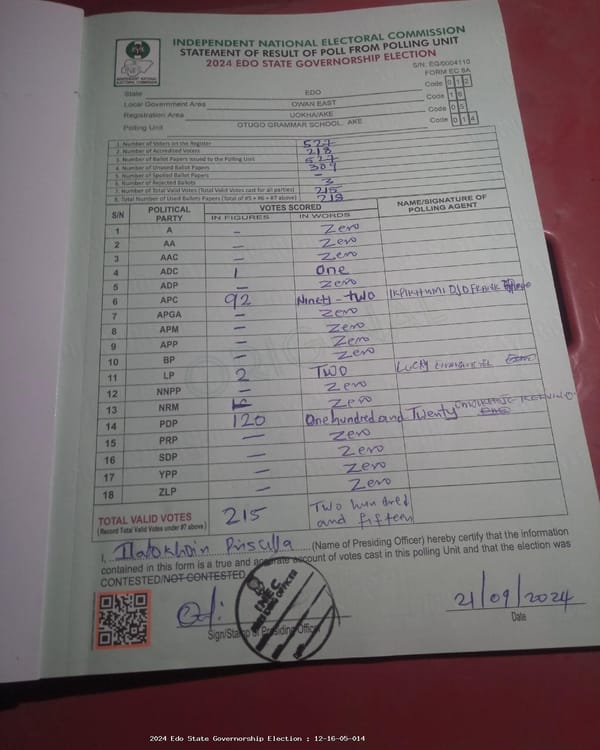 INDEPENDENT NATIONAL ELECTORAL COMMISSION
STATEMENT OF RESULT OF POLL FROM POLLING UNIT
2024 EDO STATE GOVERNORSHIP ELECTION
S/N. EG/0004110
FORM EC 8A
INDEPENDENT NATIONAL ELECTORAL COMMISSION
State EDO Code 0 1 2
Local Government Area OWAN EAST Code 1 6
Registration Area UOKHA/AKE Code 0 5
Polling Unit OTUGO GRAMMAR SCHOOL, AKE Code 0 1 4
1. Number of Voters on the Register 527
2. Number of Accredited Voters 218
3. Number of Ballot Papers Issued to the Polling Unit 527
4. Number of Unused Ballot Papers 309
5. Number of Spoiled Ballot Papers –
6. Number of Rejected Ballots 3
7. Number of Total Valid Votes (Total Valid Votes cast for all parties) 215
8. Total Number of Used Ballots Papers (Total of #5 + #6 + #7 above) 218
S/N POLITICAL PARTY VOTES SCORED NAME/SIGNATURE OF POLLING AGENT
IN FIGURES IN WORDS
1 A – Zero
2 AA – Zero
3 AAC – Zero
4 ADC 1 One
5 ADP – Zero
6 APC 92 Ninety-two
7 APGA – Zero
8 APM – Zero
9 APP – Zero
10 BP – Zero
11 LP 2 TWO LUCKY
12 NNPP – Zero
13 NRM Zero
14 PDP 120 One hundred and Twenty
15 PRP – Zero
16 SDP – Zero
17 YPP – Zero
18 ZLP – Zero
TOTAL VALID VOTES 215 Two hundred and fifteen
(Record Total Valid Votes under #7 above)
I, Priscilla (Name of Presiding Officer) hereby certify that the information
contained in this form is a true and accurate account of votes cast in this polling Unit and that the election was
CONTESTED/NOT CONTESTED
INEC
Sign/Stamp of Presiding Officer
21/09/2024
Date
2024 Edo State Governorship Election : 12-16-05-014